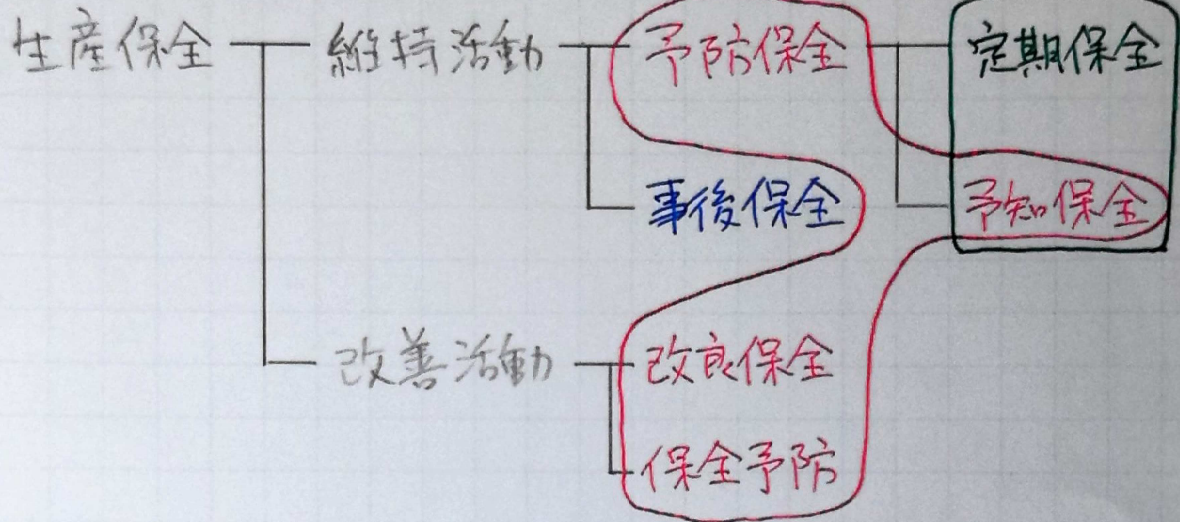 生産保全 維持活動 予防保全 定期保全
事後保全 予知保全
改善活動 改良保全
保全予防